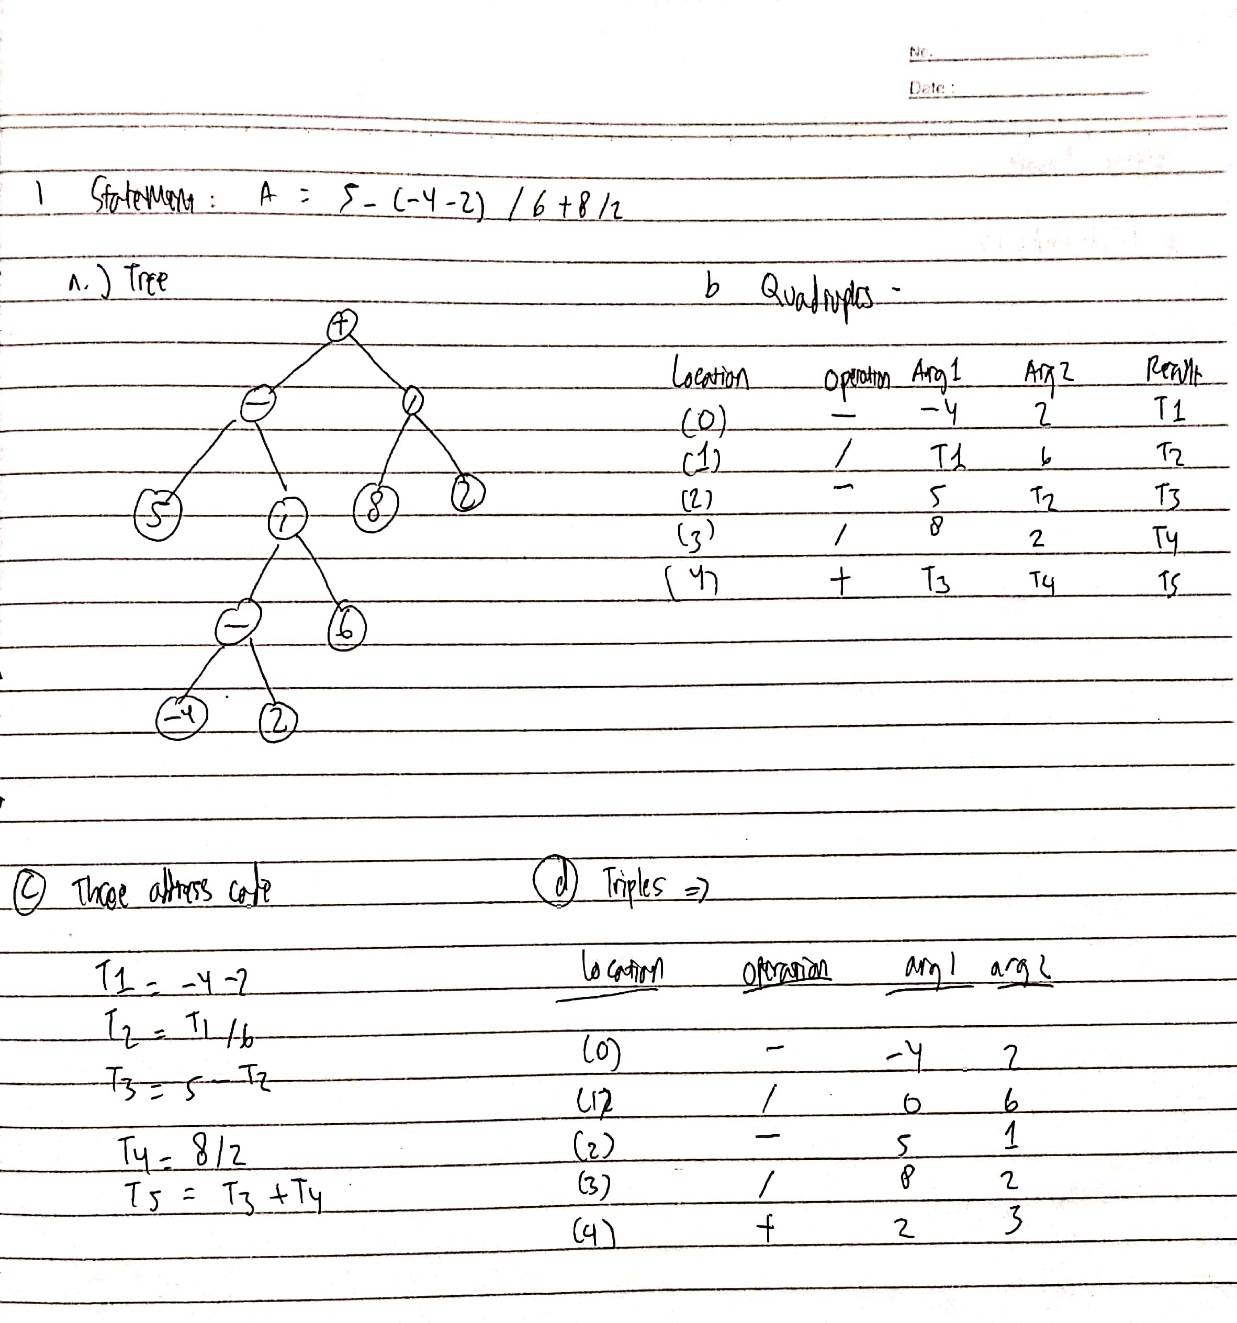 No.
Date :
1 Statement : A = 5 - (-4 -2) / 6 + 8 / 2
a.) Tree
+
- /
5 / 8 2
- 6
-4 2
b Quadruples -
Location Operation Arg 1 Arg 2 Result
(0) - -4 2 T1
(1) / T1 6 T2
(2) - 5 T2 T3
(3) / 8 2 T4
(4) + T3 T4 T5
(c) Three address code
T1 = -4 -2
T2 = T1 / 6
T3 = 5 - T2
T4 = 8 / 2
T5 = T3 + T4
(d) Triples =>
location operation arg 1 arg 2
(0) - -4 2
(1) / 0 6
(2) - 5 1
(3) / 8 2
(4) + 2 3